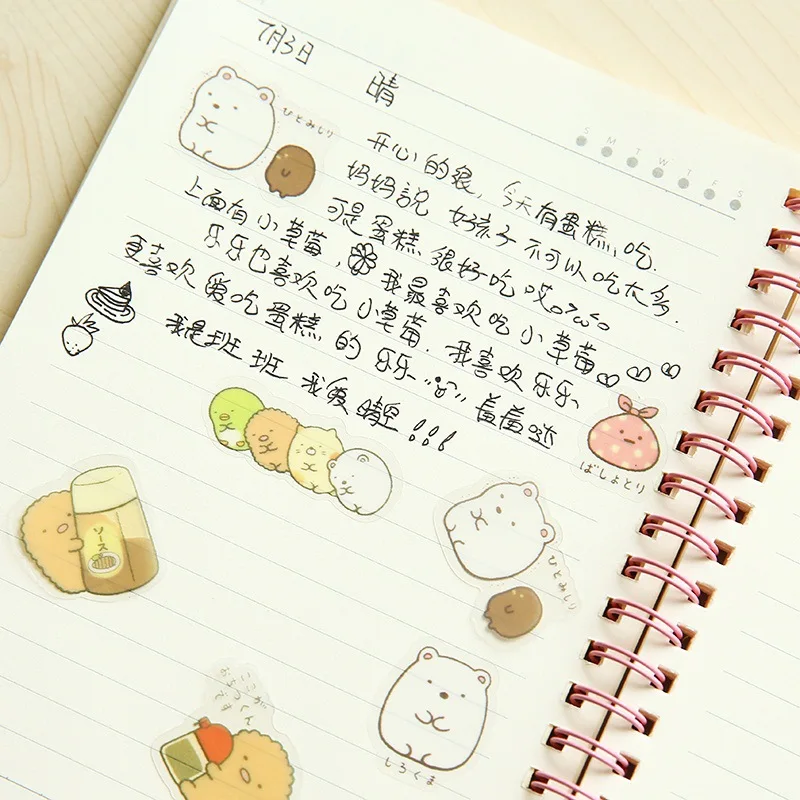 7月3日 晴
S M T W T F S
ひとみしり
开心的狠，今天有蛋糕吃.
妈妈說 女孩子不可以吃太多.
可是蛋糕很好吃哎。
上面有小草莓，我最喜欢吃小草莓
乐乐也喜欢吃小草莓.我喜欢乐乐、
更喜欢爱吃蛋糕的乐乐 羞羞哒
我是班班 我爱晴空!!!
ばしょとり
ソース
ひとみしり
しろくま